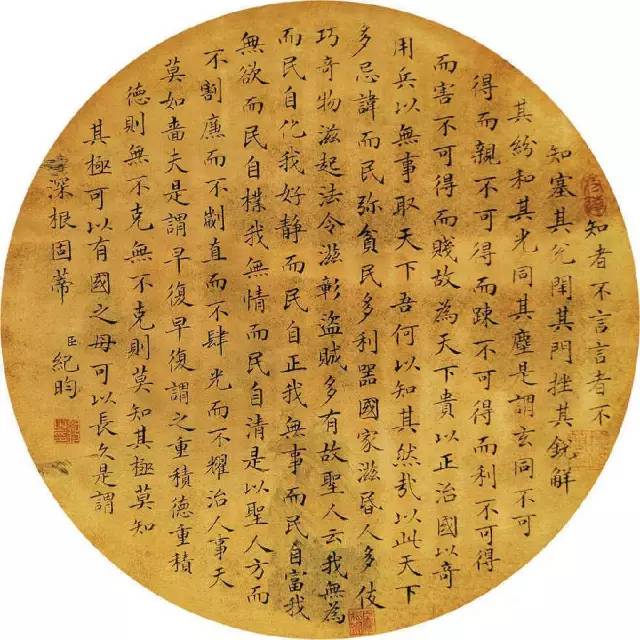 知者不言言者不
知塞其兊閉其門挫其銳解
其紛和其光同其塵是謂玄同不可
得而親不可得而踈不可得而利不可得
而害不可得而賤故為天下貴以正治國以奇
用兵以無事取天下吾何以知其然哉以此天下
多忌諱而民弥貧民多利器國家滋昏人多伎
巧奇物滋起法令滋彰盜賊多有故聖人云我無為
而民自化我好静而民自正我無事而民自富我
無欲而民自樸我無情而民自清是以聖人方而
不割廉而不劌直而不肆光而不耀治人事天
莫如嗇夫是謂早復早復謂之重積德重積
德則無不克無不克則莫知其極莫知
其極可以有國之母可以長久是謂
深根固蒂
臣紀昀